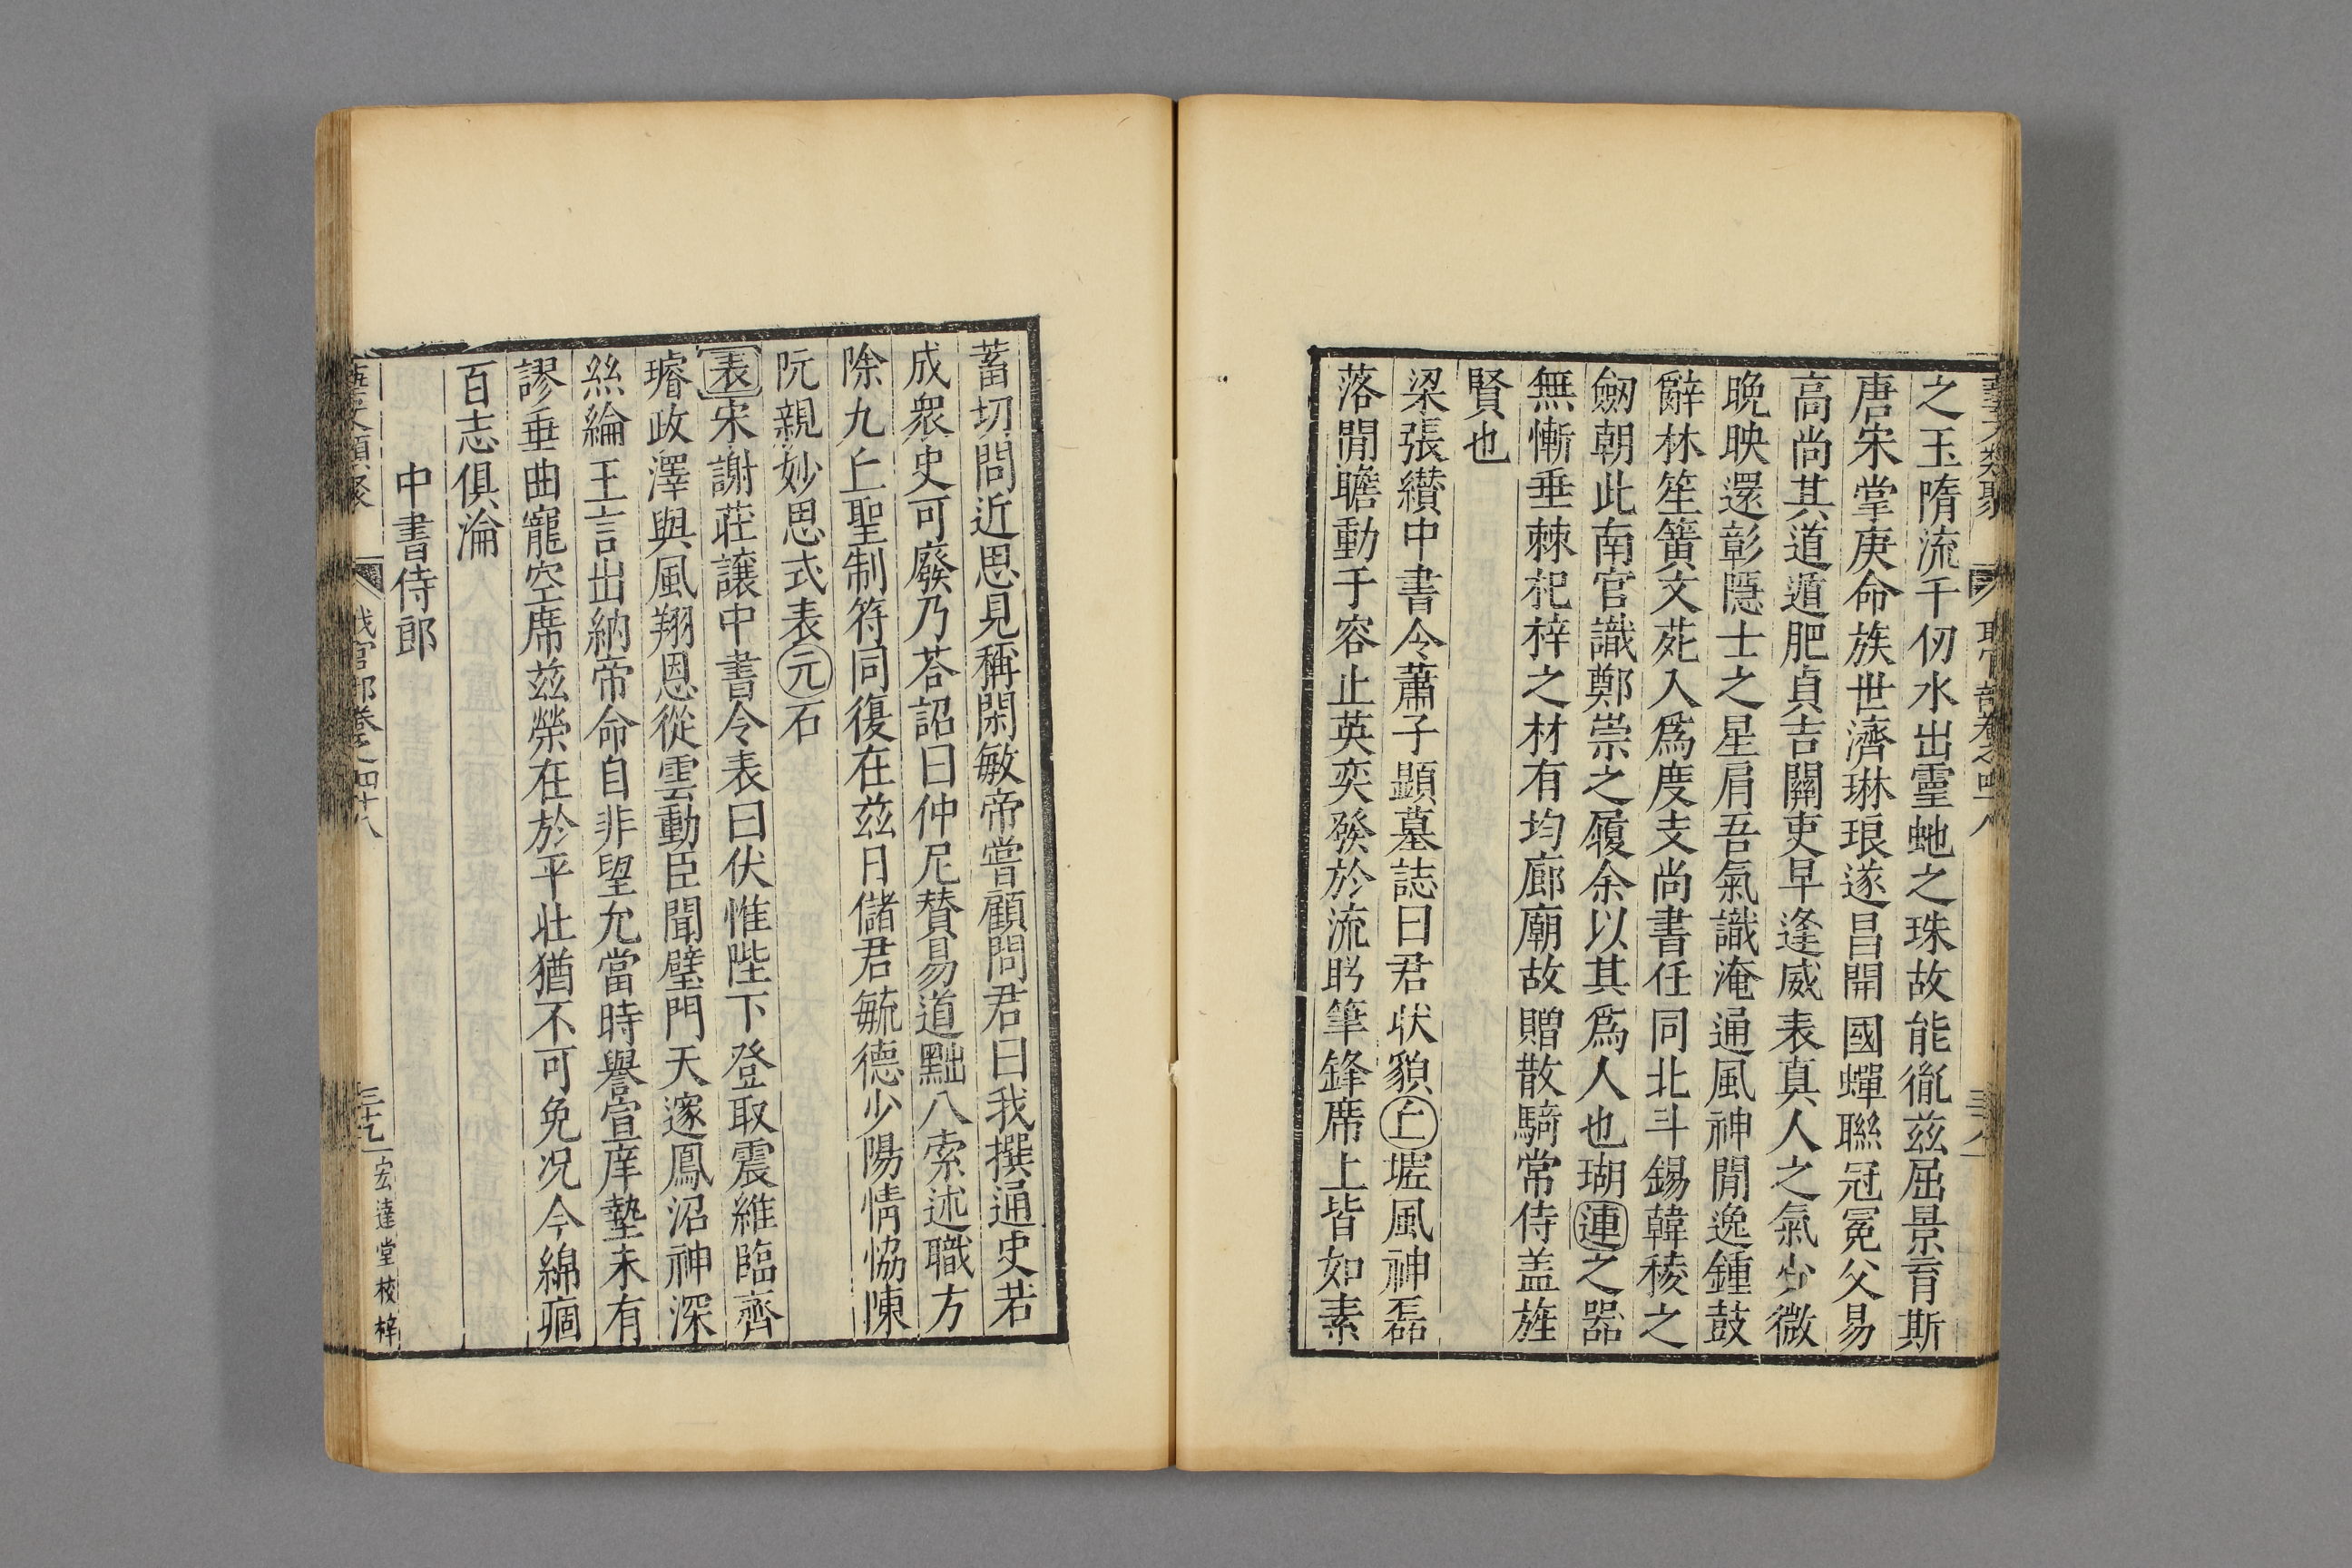 藝文類聚 職官部卷之四十八 三十八
之玉隋流千仞水出靈虵之珠故能胤兹屈景育斯
唐宋掌庚命族世濟琳琅遂昌開國蟬聯冠冕父易
高尚其道遁肥貞吉關吏早逢威表真人之氣少微
晚映還彰隱士之星肩吾氣識淹通風神閒逸鍾鼓
辭林笙簧文苑入爲度支尚書任同北斗錫韓稜之
劒朝此南宮識鄭崇之履余以其爲人也瑚璉之器
無慚垂棘杞梓之材有均廊廟故贈散騎常侍盖旌
賢也
梁張纘中書令蕭子顯墓誌曰君狀貌丘墟風神磊
落閒瞻動于容止英奕發於流眄筆鋒席上皆如素
蓄切問近思見稱閑敏帝嘗顧問君曰我撰通史若
成衆史可廢乃荅詔曰仲尼賛易道黜八索述職方
除九丘聖制符同復在兹日儲君毓德少陽情恊陳
阮親妙思式表元石
表宋謝莊讓中書令表曰伏惟陛下登取震維臨齊
璿政澤與風翔恩從雲動臣聞璧門天邃鳳沼神深
絲綸王言出納帝命自非望允當時譽宣庠塾未有
謬垂曲寵空席兹榮在於平壯猶不可免况今綿痼
百志俱淪
中書侍郎
藝文類聚 職官部卷之四十八 三十九 宏達堂校梓